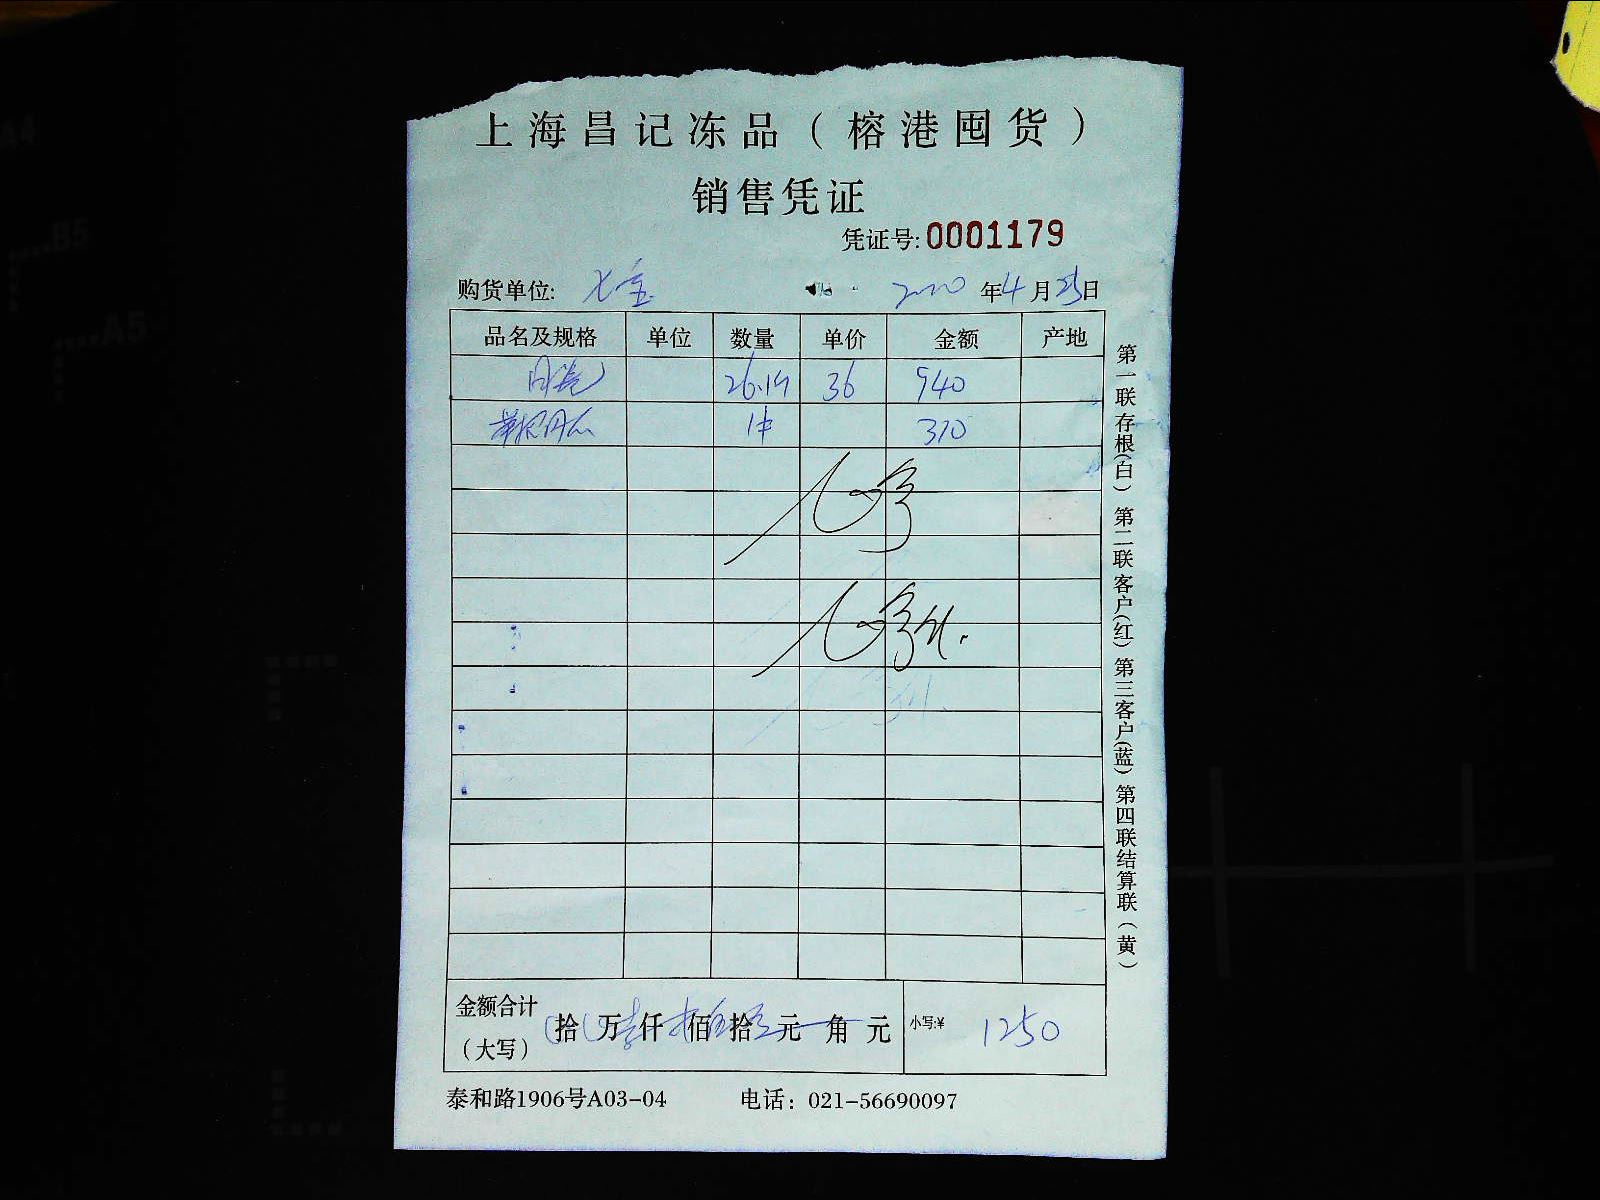 上海昌记冻品（榕港囤货）
销售凭证
凭证号:0001179
购货单位: 七宝 2020年4月25日
品名及规格 单位 数量 单价 金额 产地
26.14 36 940
1件 310
金额合计（大写） 拾 万 仟 佰 拾 元 角 元 小写:¥ 1250
泰和路1906号A03-04 电话：021-56690097
第一联存根（白）第二联客户（红）第三客户（蓝）第四联结算联（黄）